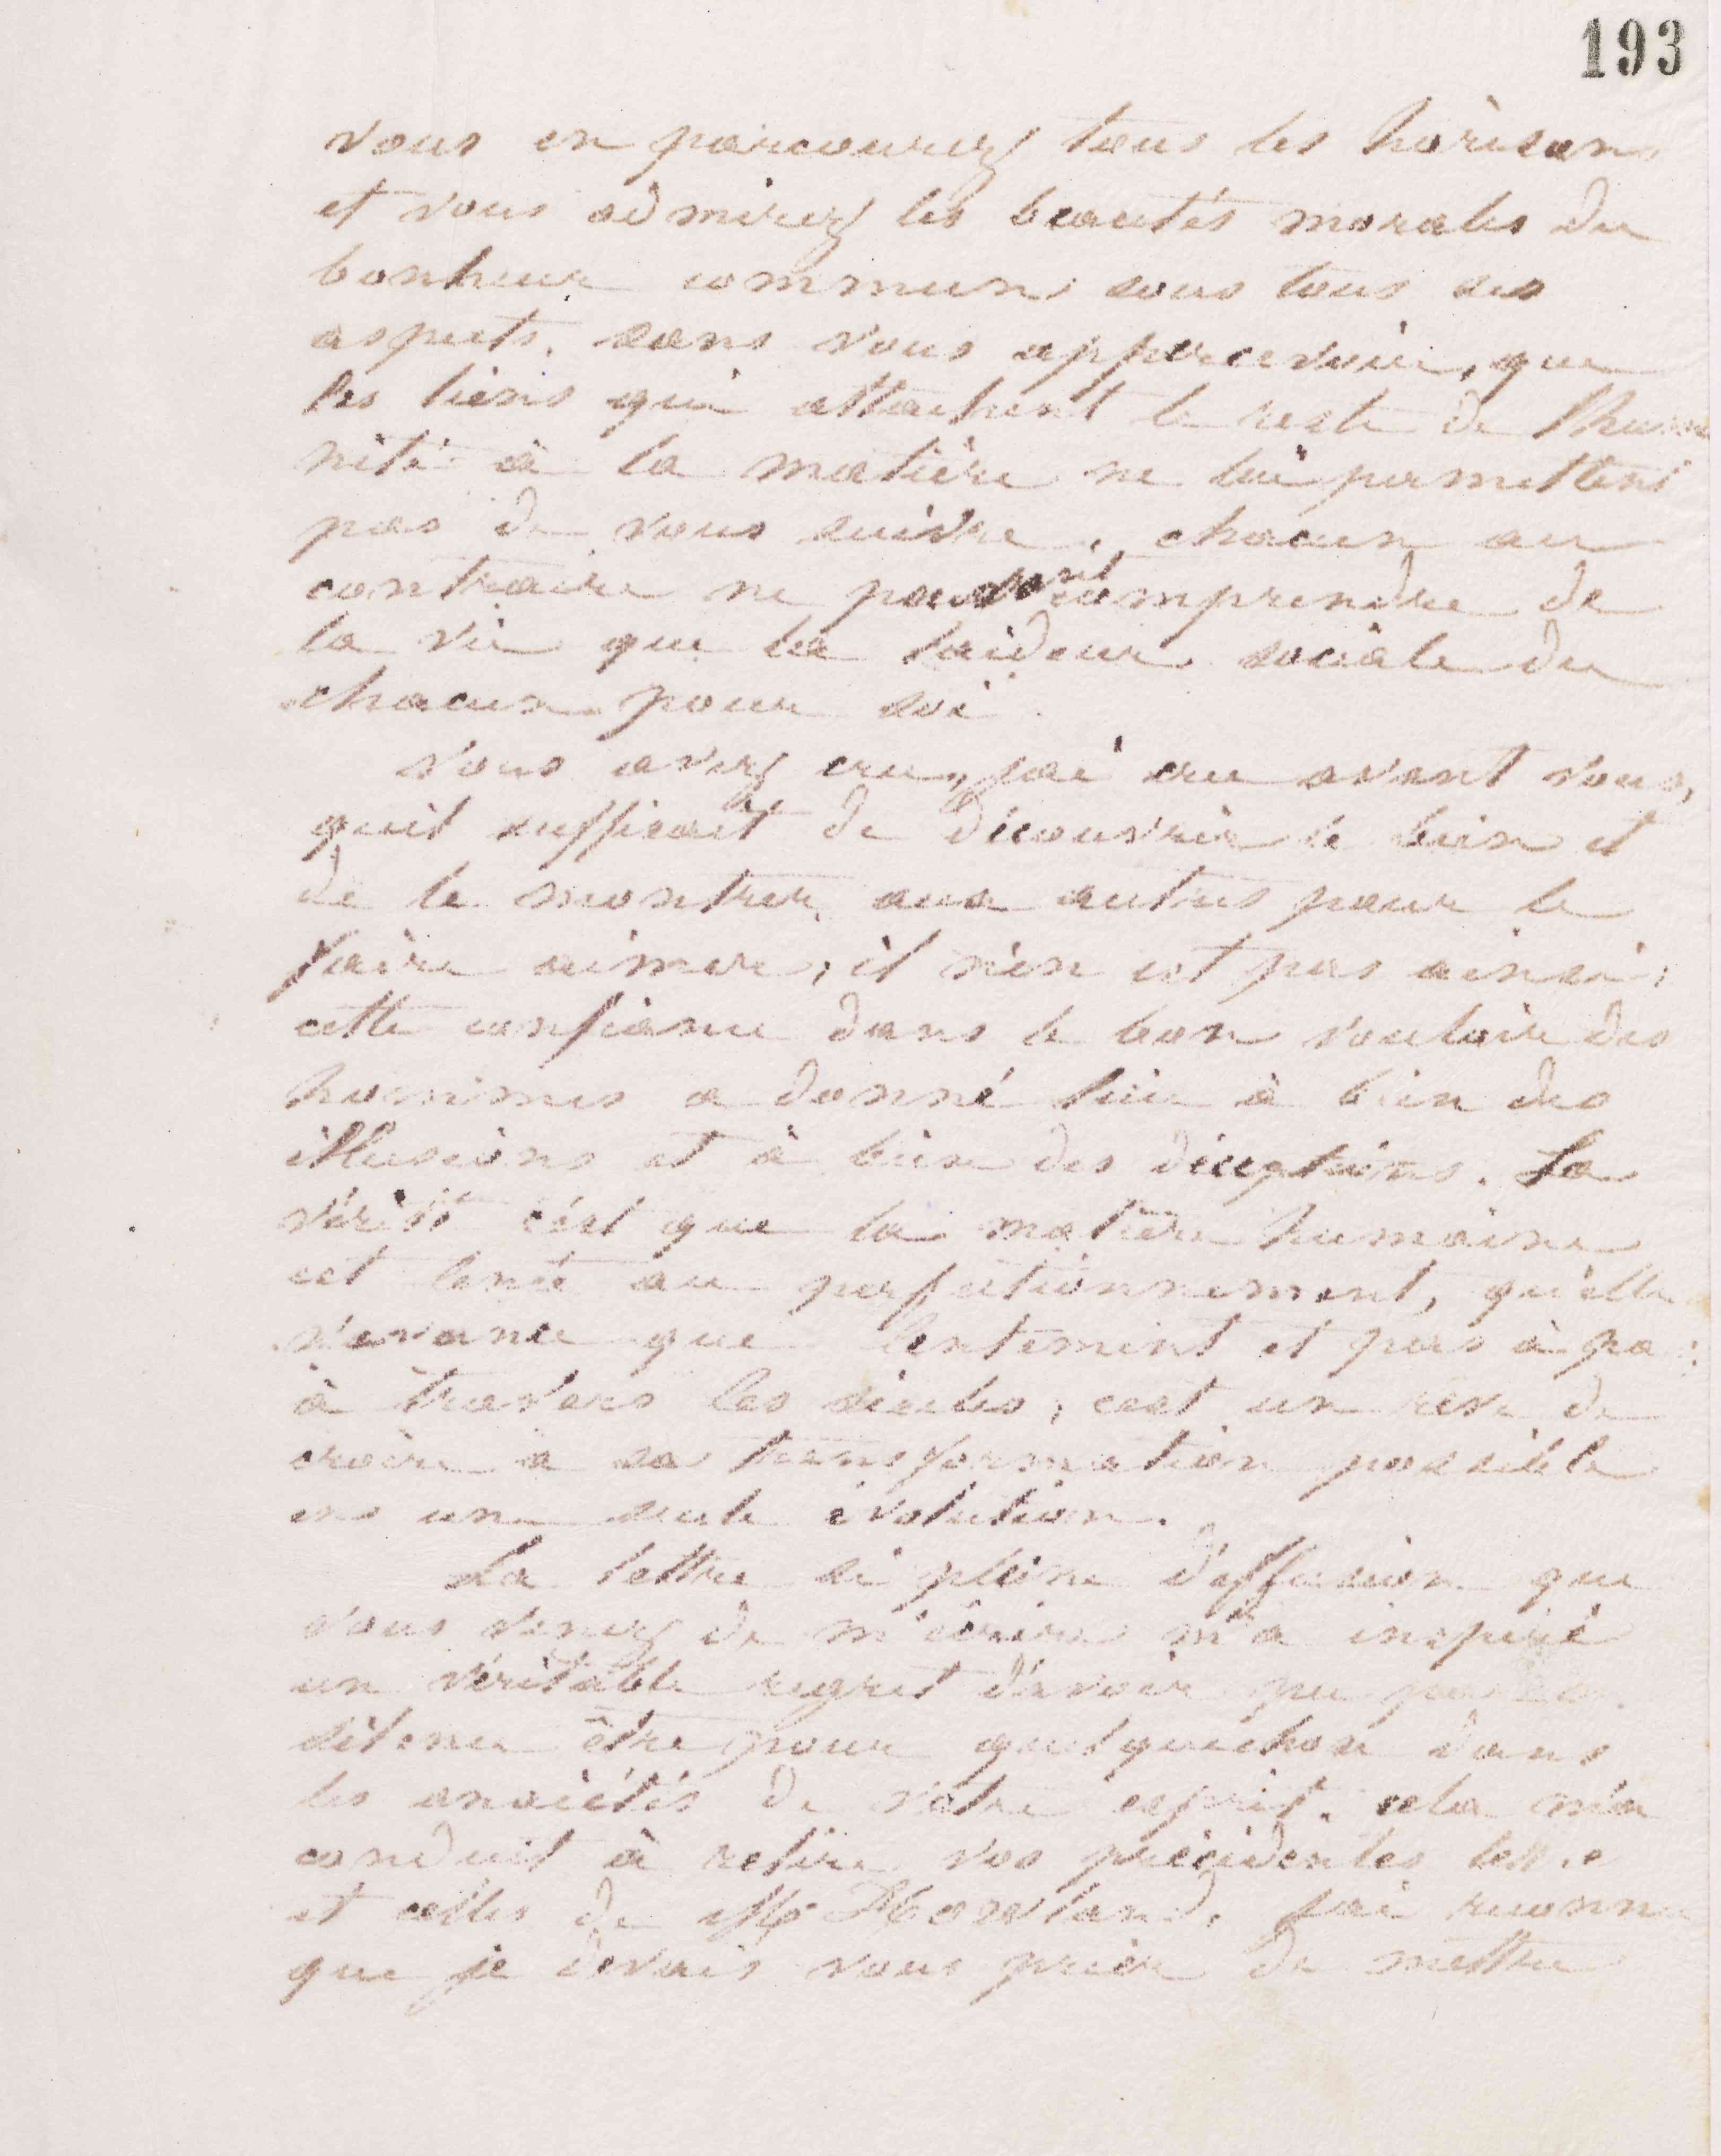 193
vous en parcourez tous les horisons
et vous admirez les beautés morales du
bonheur commun sous tous ses
aspects, sans vous appercevoir, que
les liens qui attachent le reste de l'huma
nité à la matière ne lui permettent
pas de vous suivre, chacun au
contraire ne pouvant comprendre de
la vie que la laideur sociale du
chacun pour soi.
Vous avez cru, j'ai cru avant vous,
quil suffisait de découvrir le bien et
de le montrer aux autres pour le
faire aimer; il n'en est pas ainsi;
cette confiance dans le bon vouloir des
hommes a donné lieu à bien des
illusions et à bien des déceptions. La
vérité c'est que la matière humaine
est lente au perfectionnement, qu'elle
n'avance que lentement et pas à pas
à travers les siècles; c'est un rêve de
croire à sa transformation possible
en une seule évolution.
La lettre si pleine d'effusion que
vous venez de m'écrire m'a inspiré
un véritable regret d'avoir pu par
silence être pour quelquechose dans
les anxiétés de votre esprit. cela m'a
conduit à relire vos précédentes lettre
et celles de Mr Howland. J'ai reconnu
que je devais vous prier de mettre